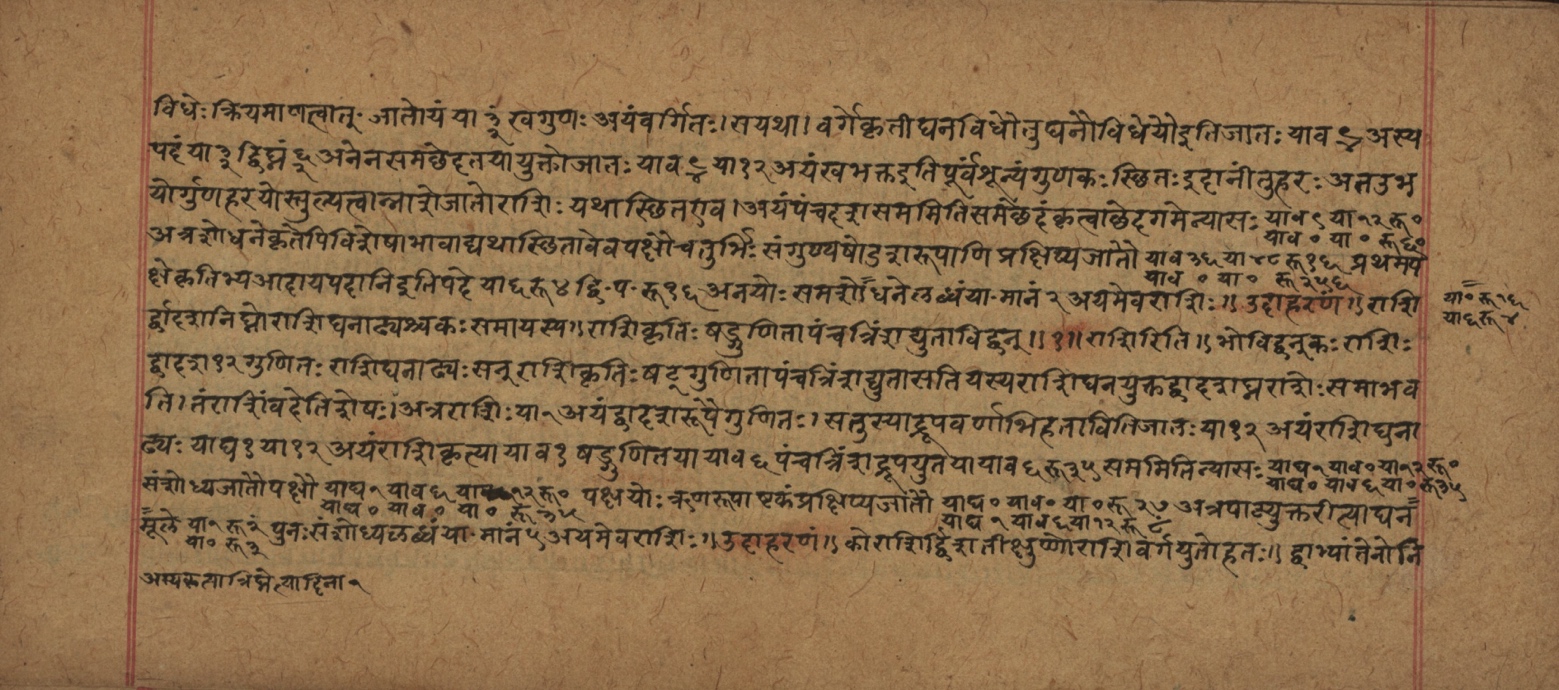 विधेः क्रियमाणत्वात् जातोयं या ३ खगुणः अयंवर्गितः। सयथा। वर्गेकृतीघनविधौतुघनौविधेयौइतिजातः याव ९/४ अस्य
पदं या ३ द्विघ्नं ६ अनेनसमछेदतयायुक्तोजातः याव ९/४ या १२ अयंखभक्तइतिपूर्वंशून्यंगुणकः स्छितः इदानींतुहरः अतउभ
योर्गुणहरयोस्तुल्यत्वान्नाशोजातोराशिः यथास्छितएव। अयंपंचदशसममितिसमछेदंकृत्वाछेदगमेन्यासः याव ९ या १२ रू ०
याव ० या ० रू ६०
अत्रशोधनेकृतेपिविशेषाभावाद्यथास्छितावेवपक्षौचतुर्भिः संगुण्यषोडशरूपाणि प्रक्षिप्यजातौ याव ३६ या ४८ रू १६ प्रथमप
याव ० या ० रू २५६
क्षेकृतिभ्यआदायपदानिइतिपदे या ६ रू ४ द्वि- प- रू १६ अनयोः समशोधनेलब्धंया- मानं २ अयमेवराशिः॥ उदाहरणं॥ राशि
या ० रू १६
या ६ रू ४
र्द्वादशनिघ्नोराशिघनाढ्यश्चकः समायस्य॥ राशिकृतिः षड्गुणितापंचत्रिंशद्युताविद्वन्॥ १॥ राशिरिति॥ भोविद्वन्कः राशिः
द्वादश १२ गुणितः राशिघनाढ्यः सन्राशिकृतिः षट्गुणितापंचत्रिंशद्युतासतियस्यराशिघनयुक्तद्वादशघ्नराशेः समाभव
ति। तंराशिंवदेतिशेषः। अत्रराशिः या १ अयंद्वादशरूपैर्गुणितः। सतुस्याद्रूपवर्णाभिहतावितिजातः या १२ अयंराशिघना
ढ्यः याघ १ या १२ अयंराशिकृत्या याव १ षड्गुणितया याव ६ पंचत्रिंशद्रूपयुतया याव ६ रू ३५ सममितिन्यासः याघ १ याव ० या १२ रू ०
याघ ० याव ६ या ० रू ३५
संशोध्यजातौपक्षौ याघ १ याव ६ या १२ रू ० पक्षयोः ऋणरूपाष्टकंप्रक्षिप्यजातौ याघ ० याव ० या ० रू २७ अत्रपाठ्युक्तरीत्याघन
याघ ० याव ० या ० रू ३५
याघ १ याव ६ या १२ रू ८
मूले या १ रू २ पुनः संशोध्यलब्धंया- मानं ५ अयमेवराशिः॥ उदाहरणं॥ कोराशिर्द्विशतीक्षुण्णोराशिवर्गयुतोहतः॥ द्वाभ्यांतेनोनि
या ० रू ३